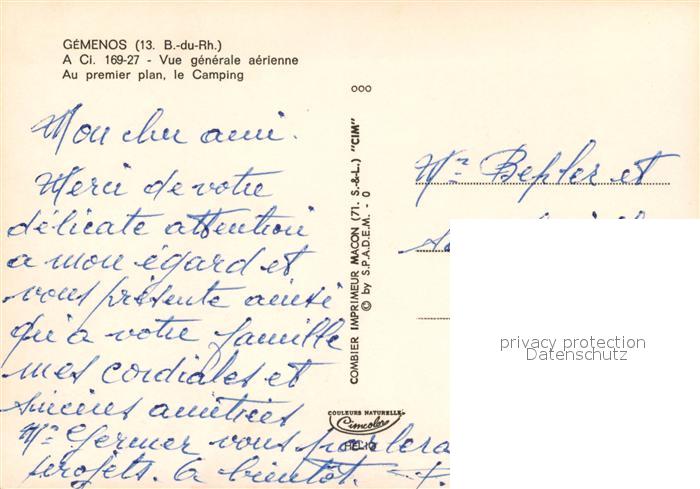 GÉMENOS (13. B.-du-Rh.)
A Ci. 169-27 - Vue générale aérienne
Au premier plan, le Camping
Mon cher ami.
Merci de votre
délicate attention
a mon égard et
vous présente ainsi
qu'a votre famille
mes cordiales et
sincères amitiés
Mr Germer vous parlera
projets. A bientôt.
COMBIER IMPRIMEUR MACON (71. S.-&-L.) "CIM"
© by S.P.A.D.E.M. - 0
COULEURS NATURELLES
Cimcolor
HELIO
Mr Bepler et
privacy protection
Datenschutz